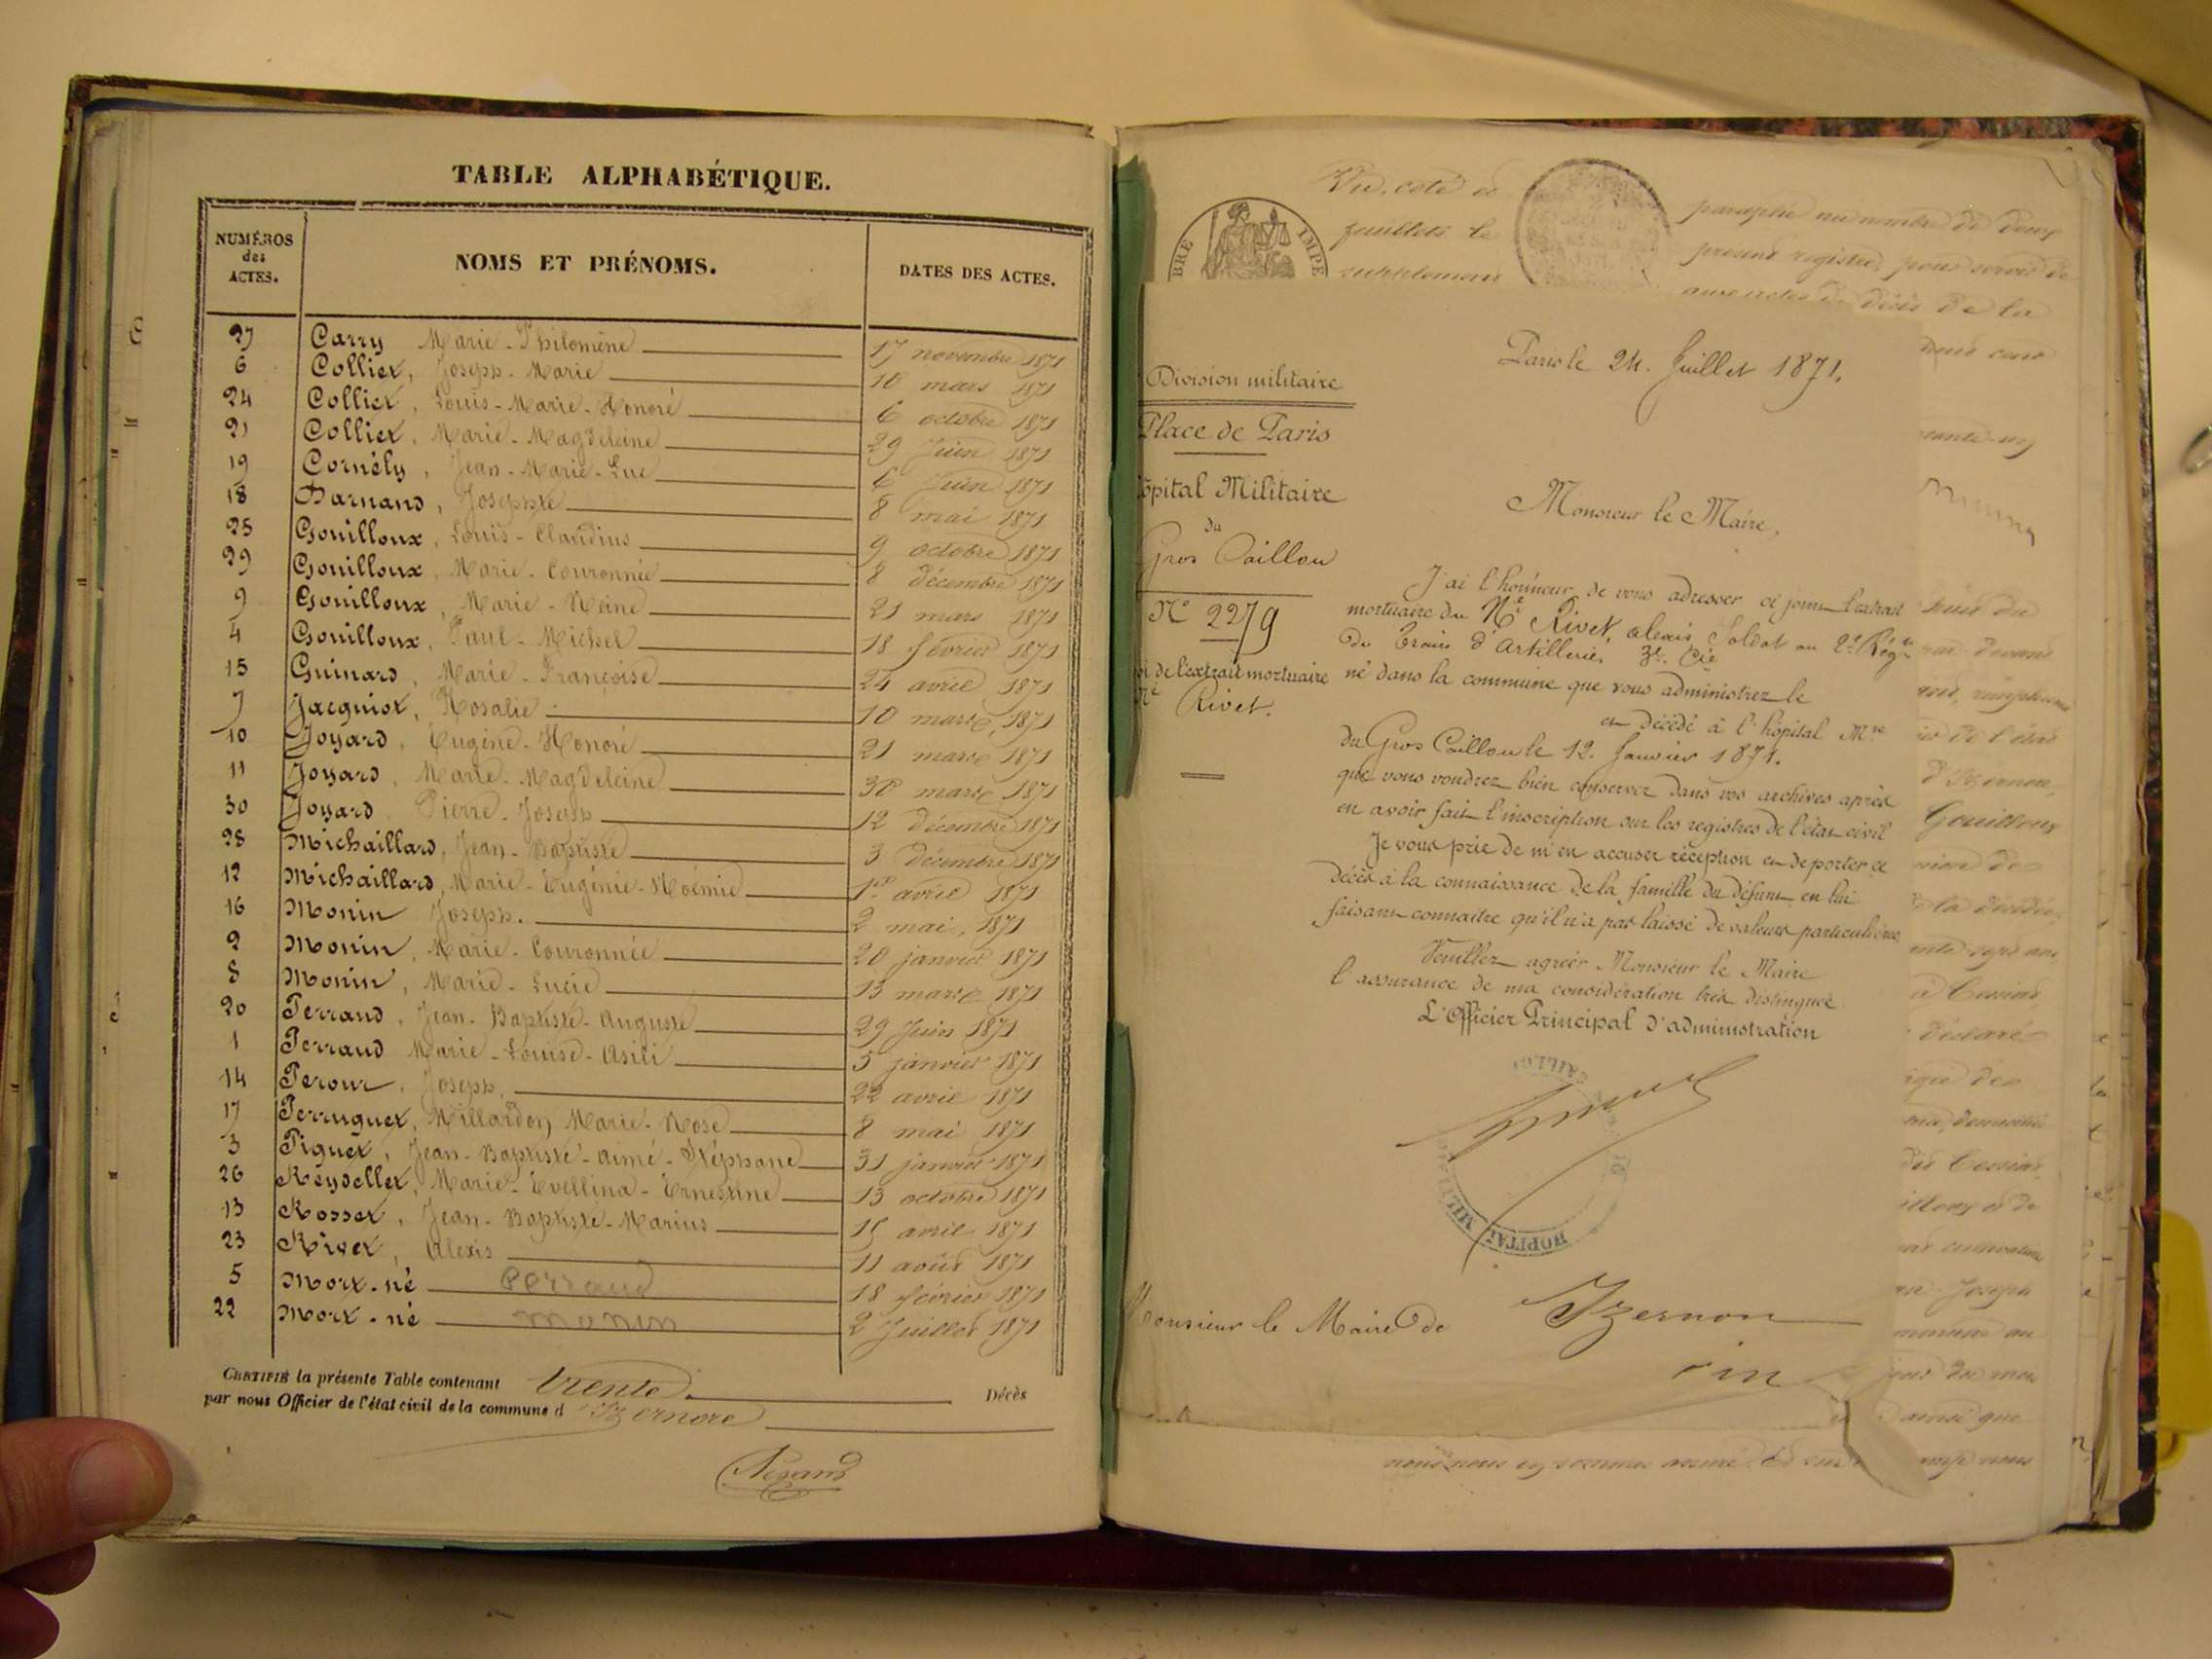 TABLE ALPHABÉTIQUE.
NUMÉROS des ACTES.
NOMS ET PRÉNOMS.
DATES DES ACTES.
27 Carry Marie-Philomène 17 novembre 1871
6 Collet, Joseph-Marie 10 mars 1871
24 Collet, Louis-Marie-Honoré 6 octobre 1871
21 Collet, Marie-Magdeleine 29 Juin 1871
19 Cornély, Jean-Marie-Luc 6 Juin 1871
18 Darnand, Josephte 8 mai 1871
25 Gouilloux, Louis-Claudius 9 octobre 1871
29 Gouilloux, Marie-Couronnée 8 décembre 1871
9 Gouilloux, Marie-Reine 21 mars 1871
4 Gouilloux, Paul-Michel 18 février 1871
15 Guinard, Marie-Françoise 24 avril 1871
7 Jacquiot, Rosalie 10 mars, 1871
10 Joyard, Eugène-Honoré 21 mars 1871
11 Joyard, Marie-Magdeleine 30 mars 1871
30 Joyard, Pierre-Joseph 12 Décembre 1871
28 Michaillard, Jean-Baptiste 3 Décembre 1871
12 Michaillard, Marie-Eugénie-Noémie 1er avril 1871
16 Monin Joseph. 2 mai, 1871
2 Monin, Marie-Couronnée 20 janvier 1871
8 Monin, Marie-Lucie 13 mars 1871
20 Perraud, Jean-Baptiste-Auguste 29 Juin 1871
1 Perraud Marie-Louise-Asili 5 janvier 1871
14 Perour, Joseph, 22 avril 1871
17 Perruquet, Millardon, Marie-Rose 8 mai 1871
3 Piquet, Jean-Baptiste-Aimé-Stéphane 31 janvier 1871
26 Reydellet, Marie-Evellina-Ernestine 13 octobre 1871
13 Rosset, Jean-Baptiste-Marius 15 avril 1871
23 Rivet, Alexis 11 août 1871
5 Mort-né Perraud 18 février 1871
22 Mort-né Monin 2 Juillet 1871
CERTIFIÉ la présente Table contenant trente Décès
par nous Officier de l'état civil de la commune d'Izernore
Vu, coté et paraphé au nombre de deux
feuillets le présent registre, pour servir de
supplément aux actes de décès de la
BRE IMPE
Paris le 24. Juillet 1871.
Division militaire
Place de Paris
ôpital Militaire
du
Gros Caillou
N° 2279
oi de l'extrait mortuaire
Né Rivet.
Monsieur le Maire,
J'ai l'honneur de vous adresser ci joint l'extrait
mortuaire du Né Rivet, alexis Soldat au 2e Régt
du Train d'Artillerie, 3e Cie
né dans la commune que vous administrez le
et décédé à l'hôpital Mre
du Gros Caillou le 12. Janvier 1871.
que vous voudrez bien conserver dans vos archives après
en avoir fait l'inscription sur les registres de l'état civil
Je vous prie de m'en accuser réception et de porter ce
décès à la connaissance de la famille du défunt en lui
faisant connaître qu'il n'a pas laissé de valeurs particulières
Veuillez agréer Monsieur le Maire
l'assurance de ma considération très distinguée
L'Officier Principal d'administration
HOPITAL MILIT
CAILLOU
Monsieur le Maire de Izernon